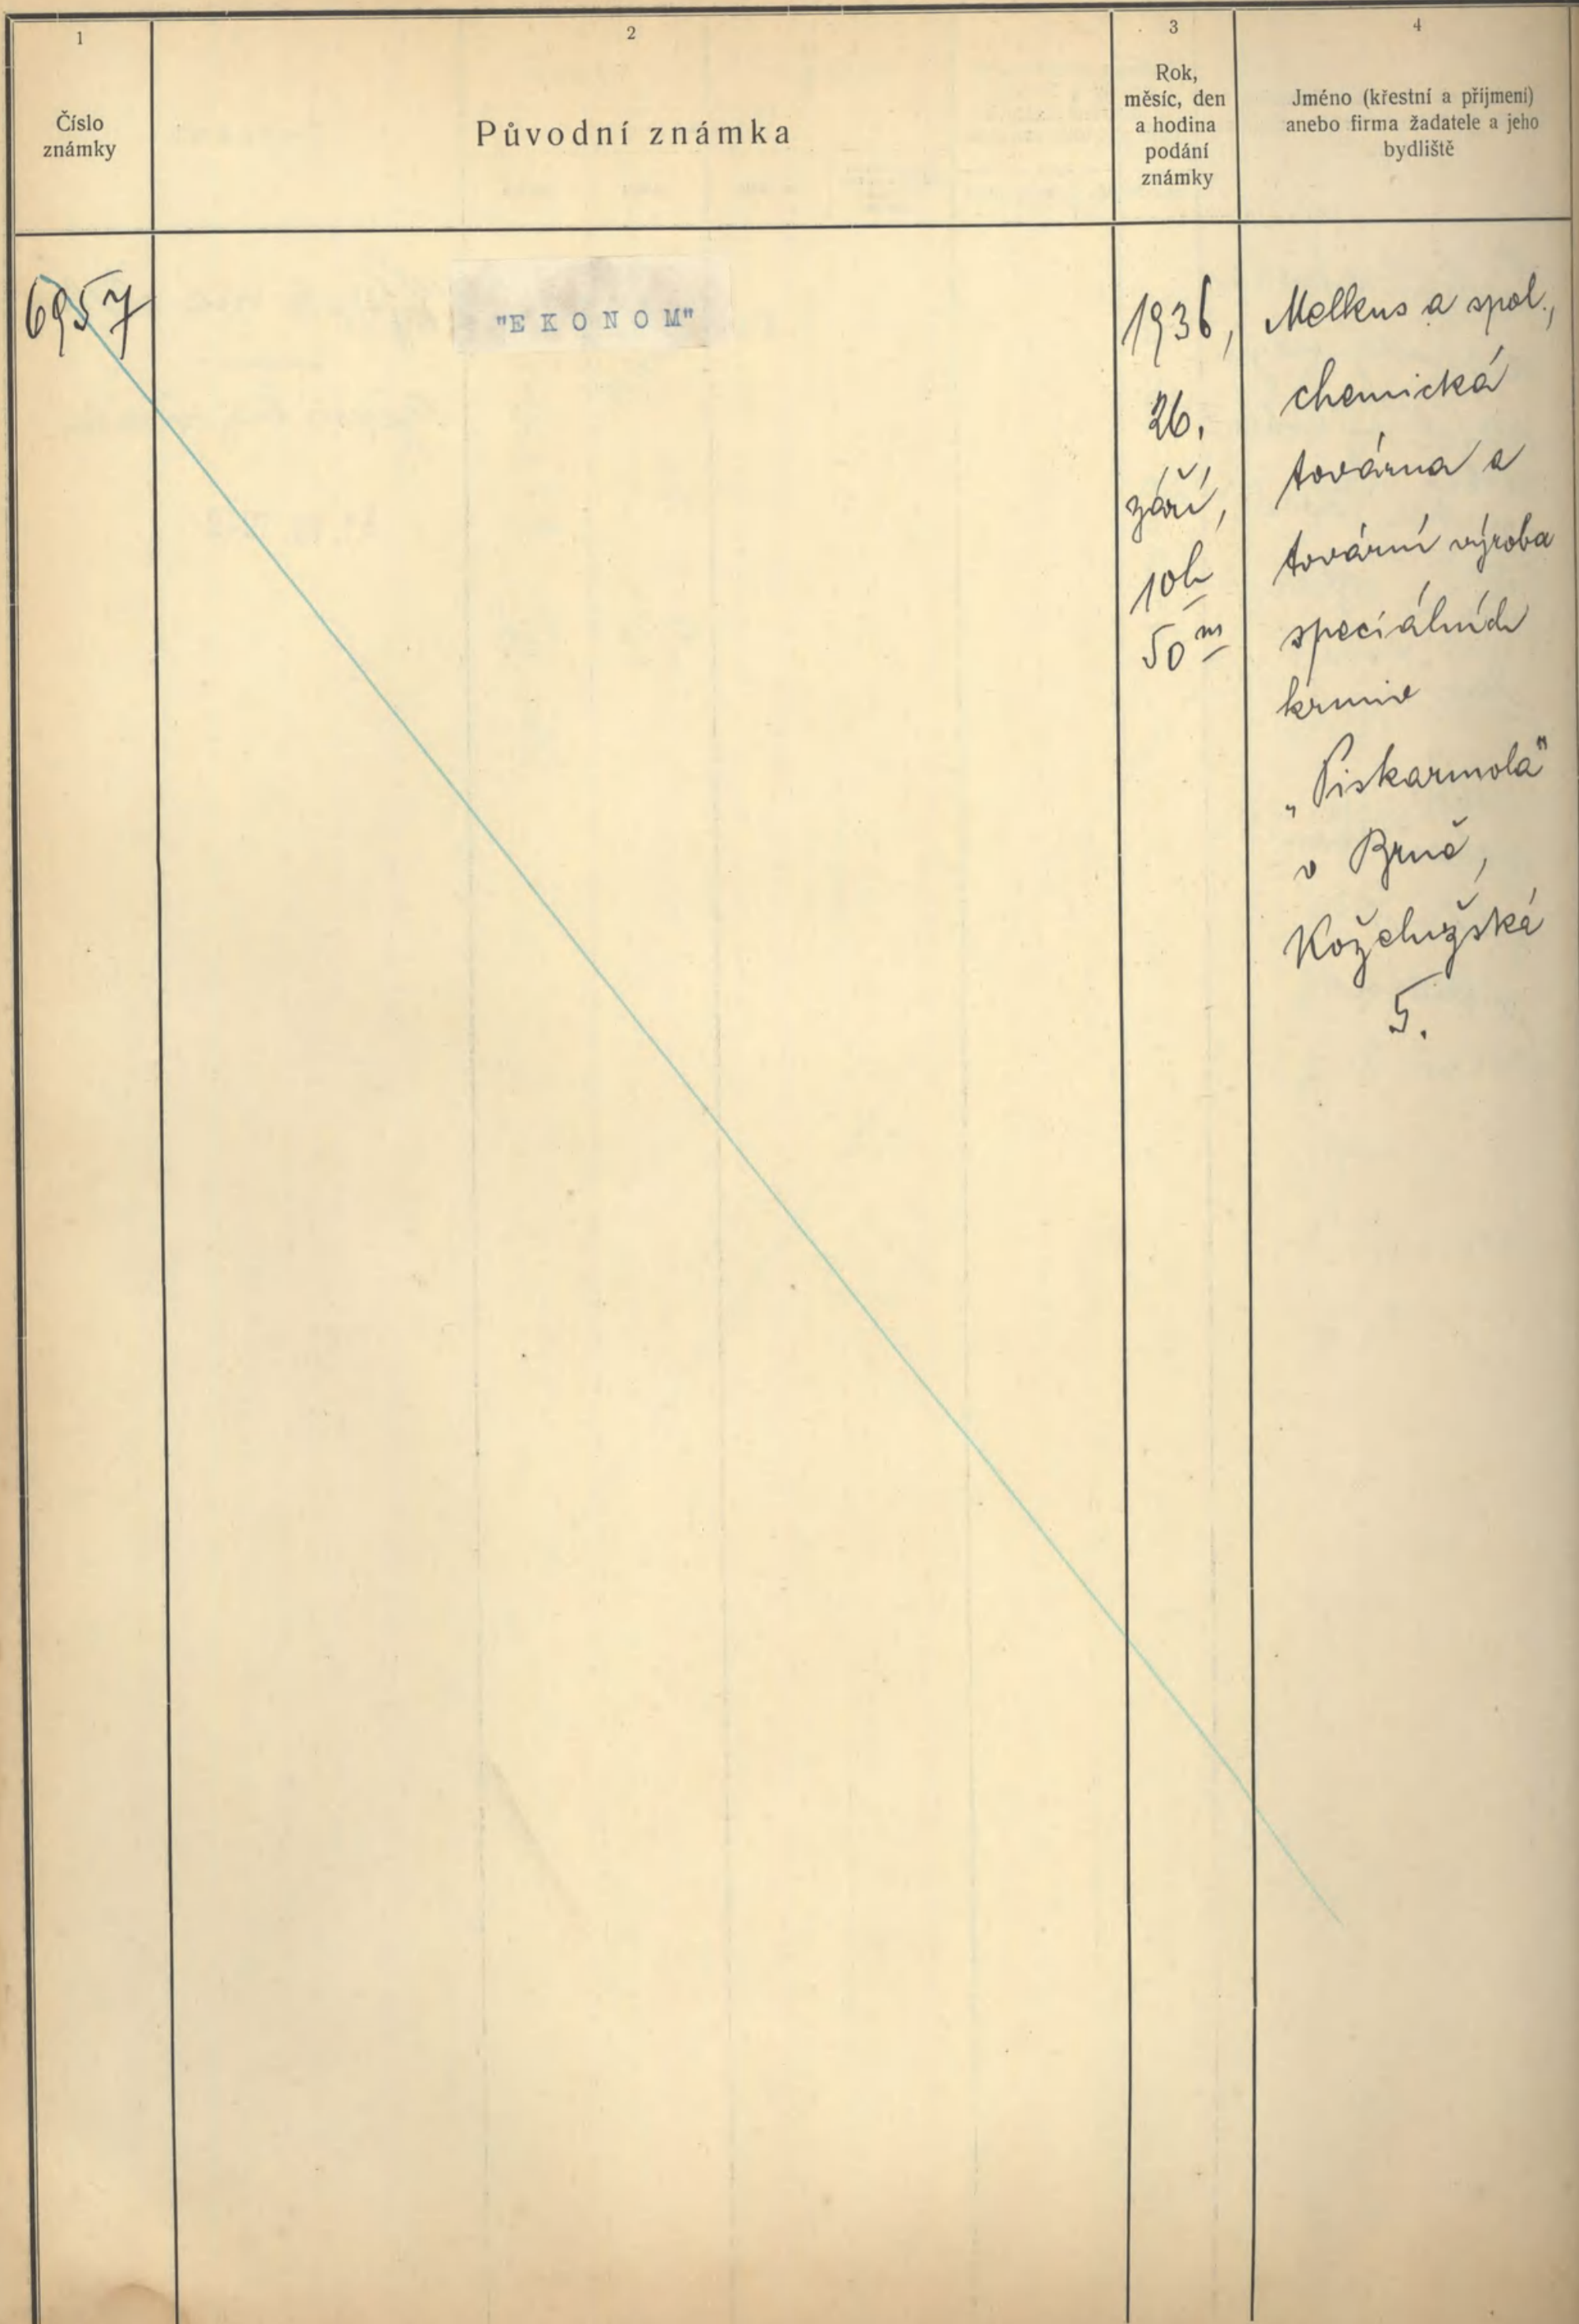 1
Číslo
známky
2
Původní známka
3
Rok,
měsíc, den
a hodina
podání
známky
4
Jméno (křestní a příjmení)
anebo firma žadatele a jeho
bydliště
6957
"EKONOM"
1936,
26.
září,
10h
50m
Melkus a spol.,
chemická
továrna a
tovární výroba
speciálních
krmiv
„Piskarmola"
v Brně,
Koželužská
5.